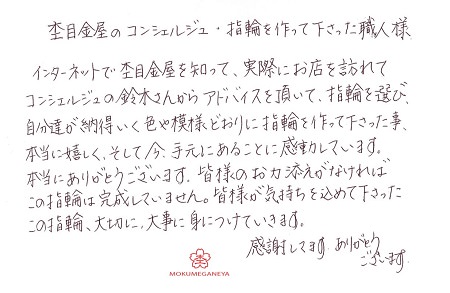 杢目金屋のコンシェルジュ・指輪を作って下さった職人様
インターネットで杢目金屋を知って、実際にお店を訪れて
コンシェルジュの鈴木さんからアドバイスを頂いて、指輪を選び、
自分達が納得いく色や模様どおりに指輪を作って下さった事、
本当に嬉しく、そして今、手元にあることに感動しています。
本当にありがとうございます。皆様のお力添えがなければ
この指輪は完成していません。皆様が気持ちを込めて下さった
この指輪、大切に、大事に身につけていきます。
感謝してます。ありがとう
ございます。
MOKUMEGANEYA